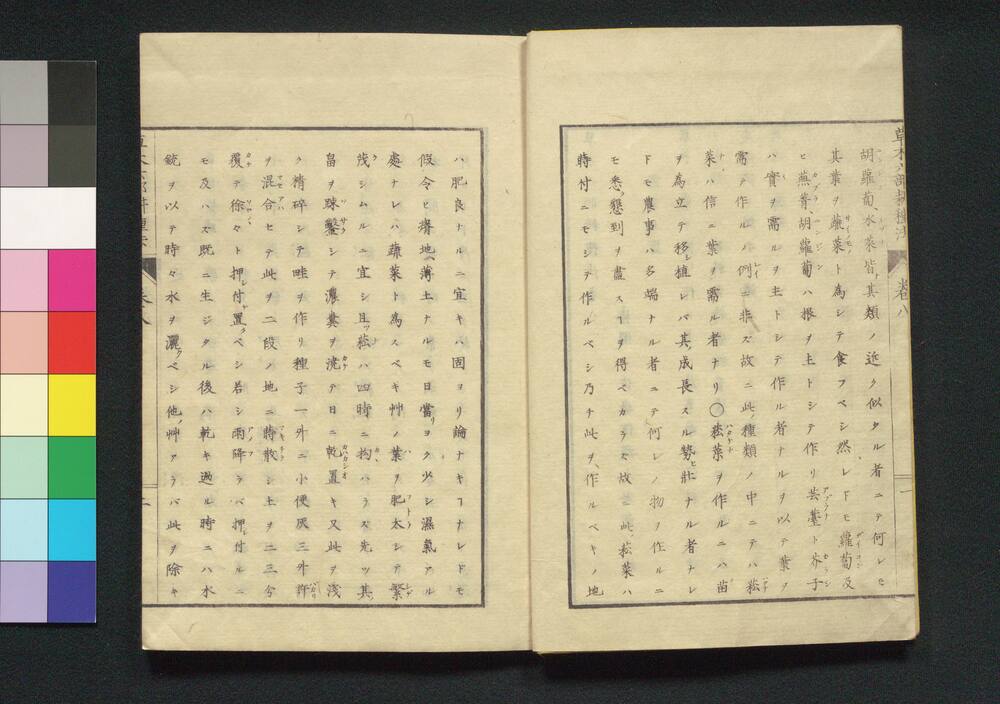 草木六部耕種法 卷八 一
胡蘿蔔、水菜皆其類ノ近ク似タル者ニテ何レモ
其葉ヲ蔬菜ト為シテ食フベシ然レドモ蘿蔔及
ヒ蕪菁胡蘿蔔ハ根ヲ主トシテ作リ芸薹ト芥子
ハ實ヲ需ルヲ主トシテ作ル者ナルヲ以テ葉ヲ
需テ作ルノ例ニ非ズ故ニ此種類ノ中ニテハ菘
菜ハ信ニ葉ヲ需ル者ナリ〇菘菜ヲ作ルニハ苗
ヲ為立テ移シ植レバ其成長スル勢ヒ壯ナル者ナレ
ドモ農事ハ多端ナル者ニテ何レノ物ヲ作ルニ
モ悉ク懇到ヲ盡スヿヲ得ベカラズ故ニ此菘菜ハ
時付ニモシテ作ルベシ乃チ此ヲ作ルベキノ地
ハ肥良ナルニ宜キハ固ヨリ論ナキヿナレドモ
假令ヒ瘠地薄土ナルモ日當リヨク少シ濕氣アル
處ナレバ蔬菜ト為スベキ艸ノ葉ヲ肥太シテ繁
茂シムルニ宜シ且ツ菘ハ四時ニ拘ハラズ先ツ其
畠ヲ疎鑿シテ濃糞ヲ澆テ日ニ乾置キ又此ヲ浅
ク精碎シテ畦ヲ作リ種子一升ニ小便灰三升許
ヲ混合セテ此ヲ二段ノ地ニ蒔散シ土ヲ二三分
覆テ徐々ト押付置クベシ若シ雨降ラバ押付ルニ
モ及ハズ既ニ生ジタル後ハ乾キ過ル時ニハ水
銃ヲ以テ時々水ヲ灑クベシ他ノ艸アラバ此ヲ除キ